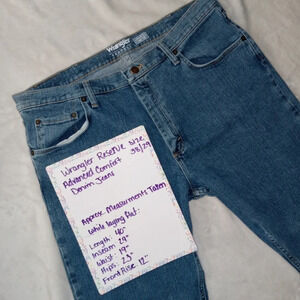 Wrangler
Wrangler Reserve Size
Advanced Comfort 38/29
Denim Jeans
Approx Measurments Taken
while laying flat:
Length 40"
Inseam 29"
Waist 19"
Hips: 23"
Front Rise 12"